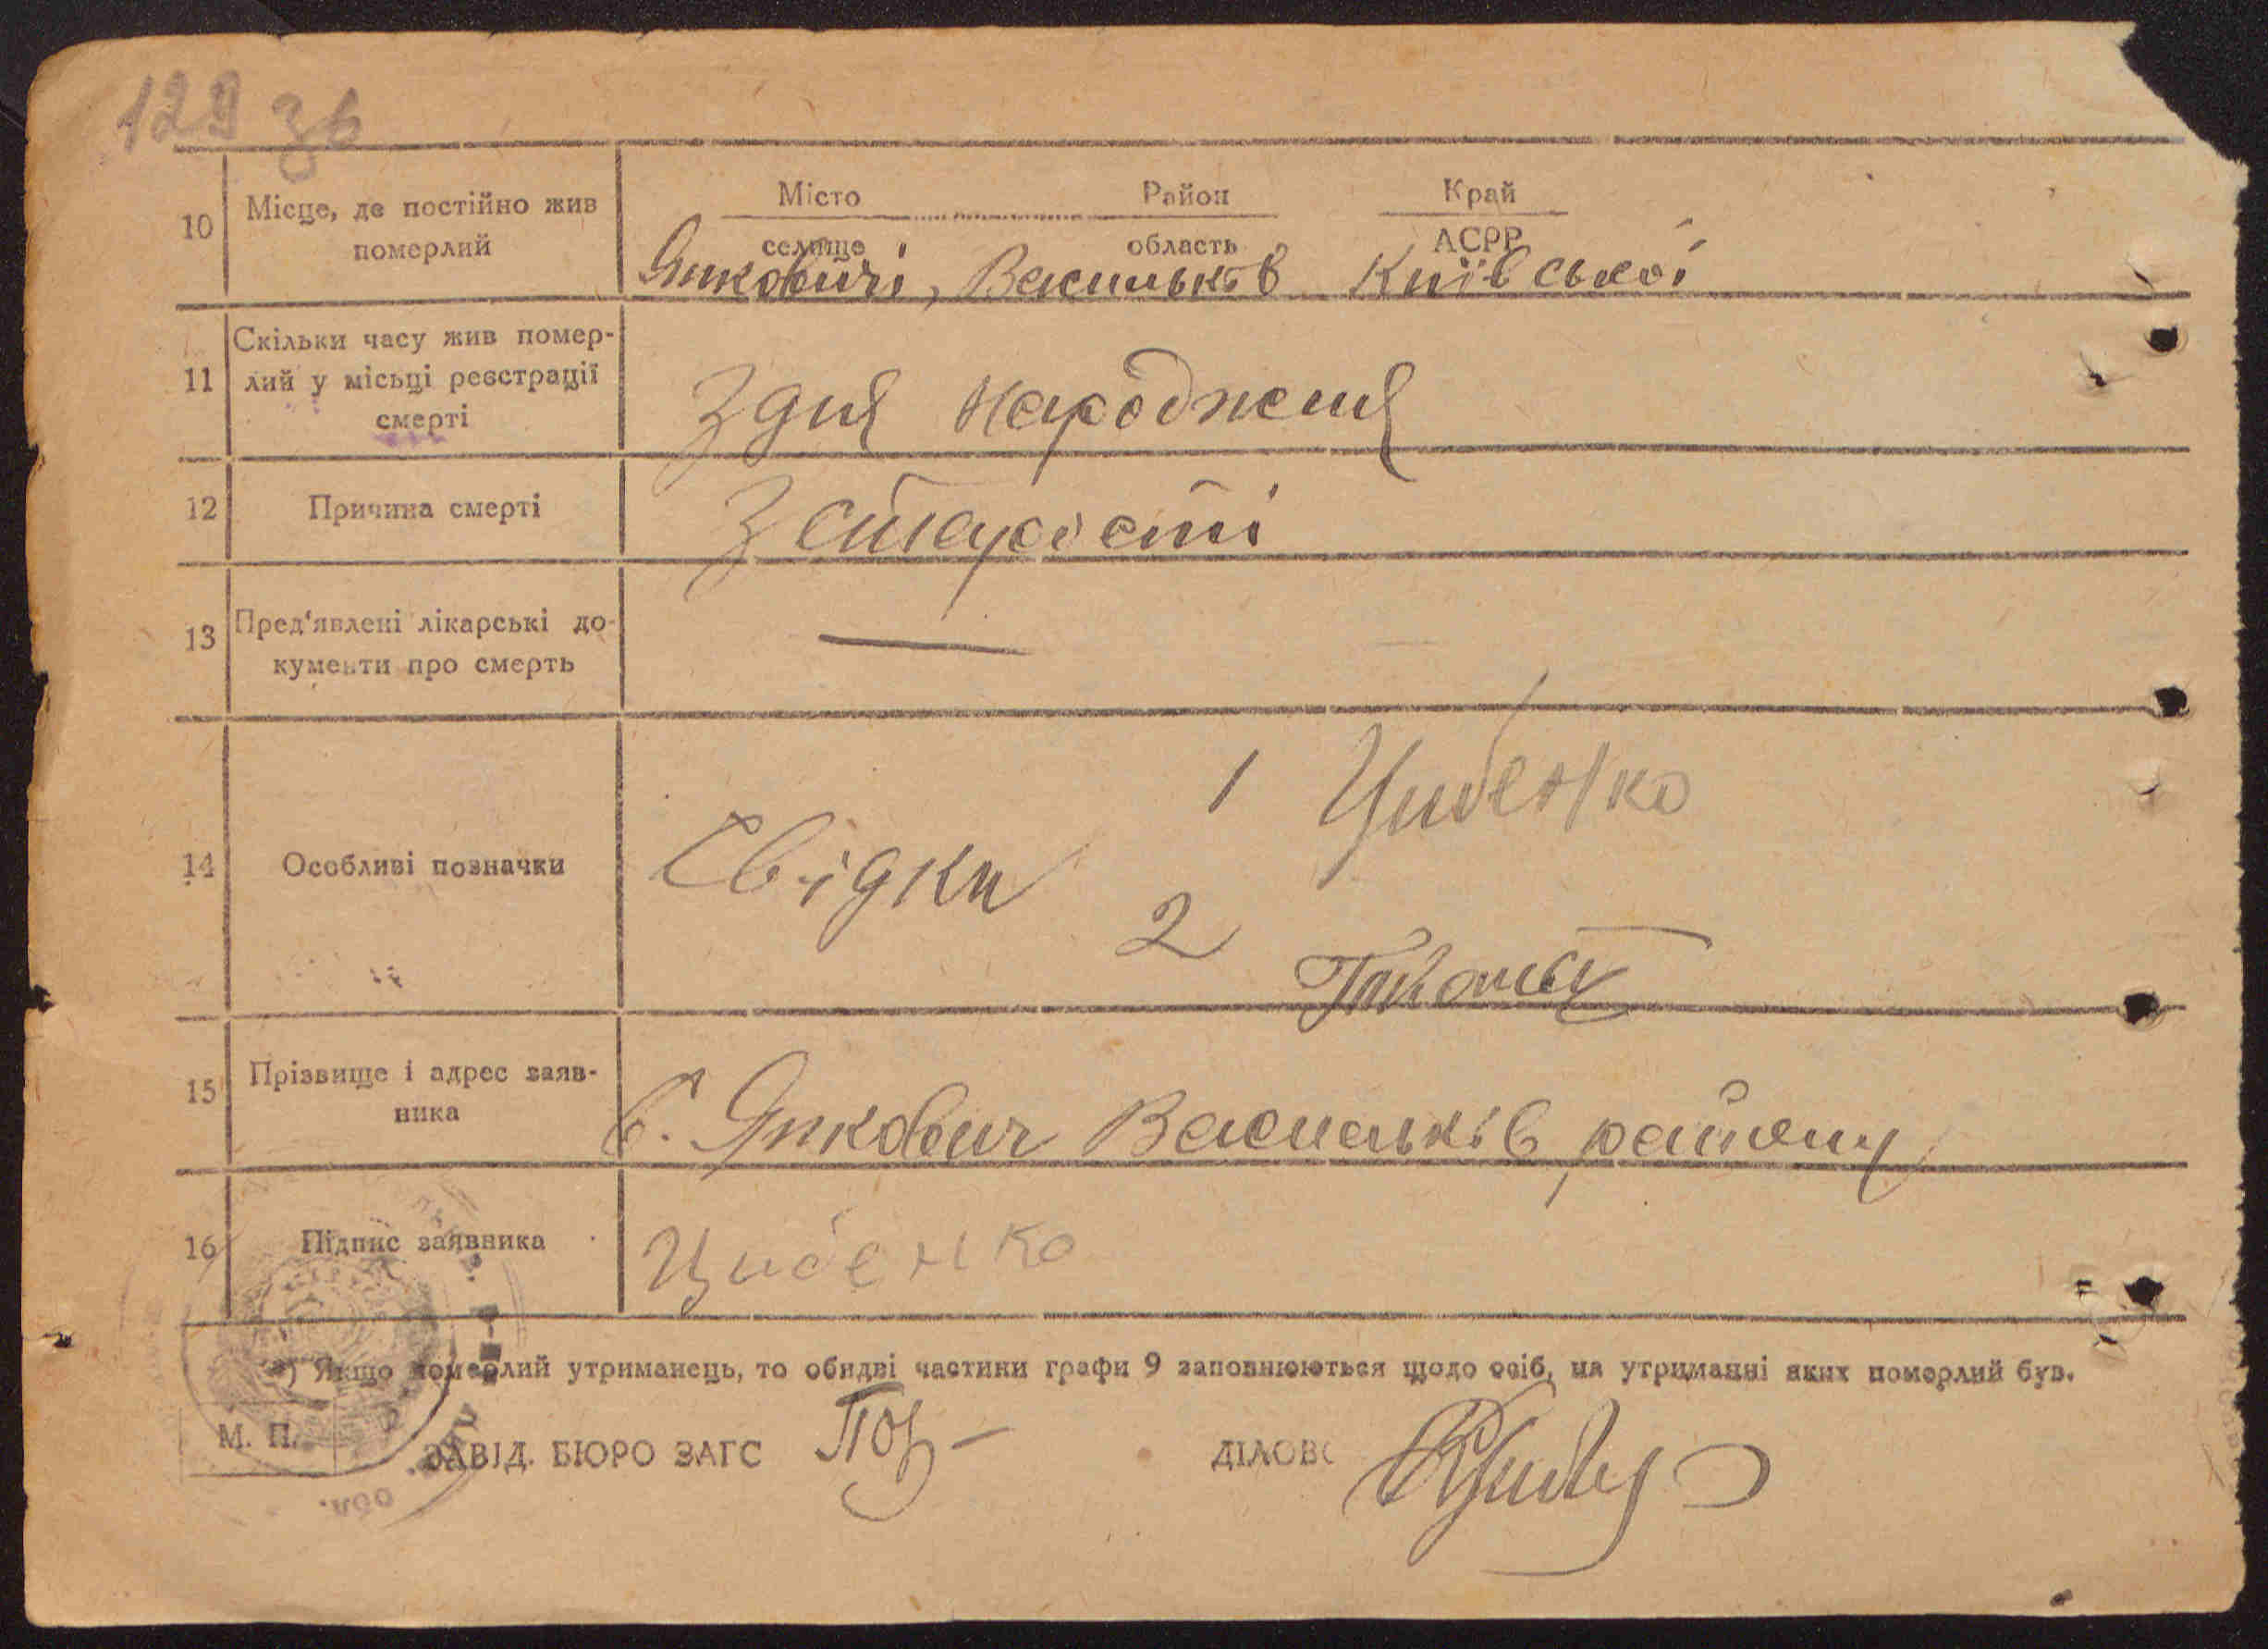 129 зв
10 Місце, де постійно жив померлий
Місто Район Край
селище область АСРР
Яцковичі, Васильків Київської
11 Скільки часу жив помер-
лий у місьці реєстрації
смерті
З дня народженя
12 Причина смерті
З старості
13 Пред'явлені лікарські до-
кументи про смерть
—
14 Особливі позначки
Свідки
1 Цибенко
2
15 Прізвище і адрес заяв-
ника
с. Яцкович Васильків району
16 Підпис заявника
Цибенко
*) Якщо померлий утриманець, то обидві частини графи 9 заповнюються щодо осіб, на утриманні яких померлий був.
М. П.
ЗАВІД. БЮРО ЗАГС
ДІЛОВ